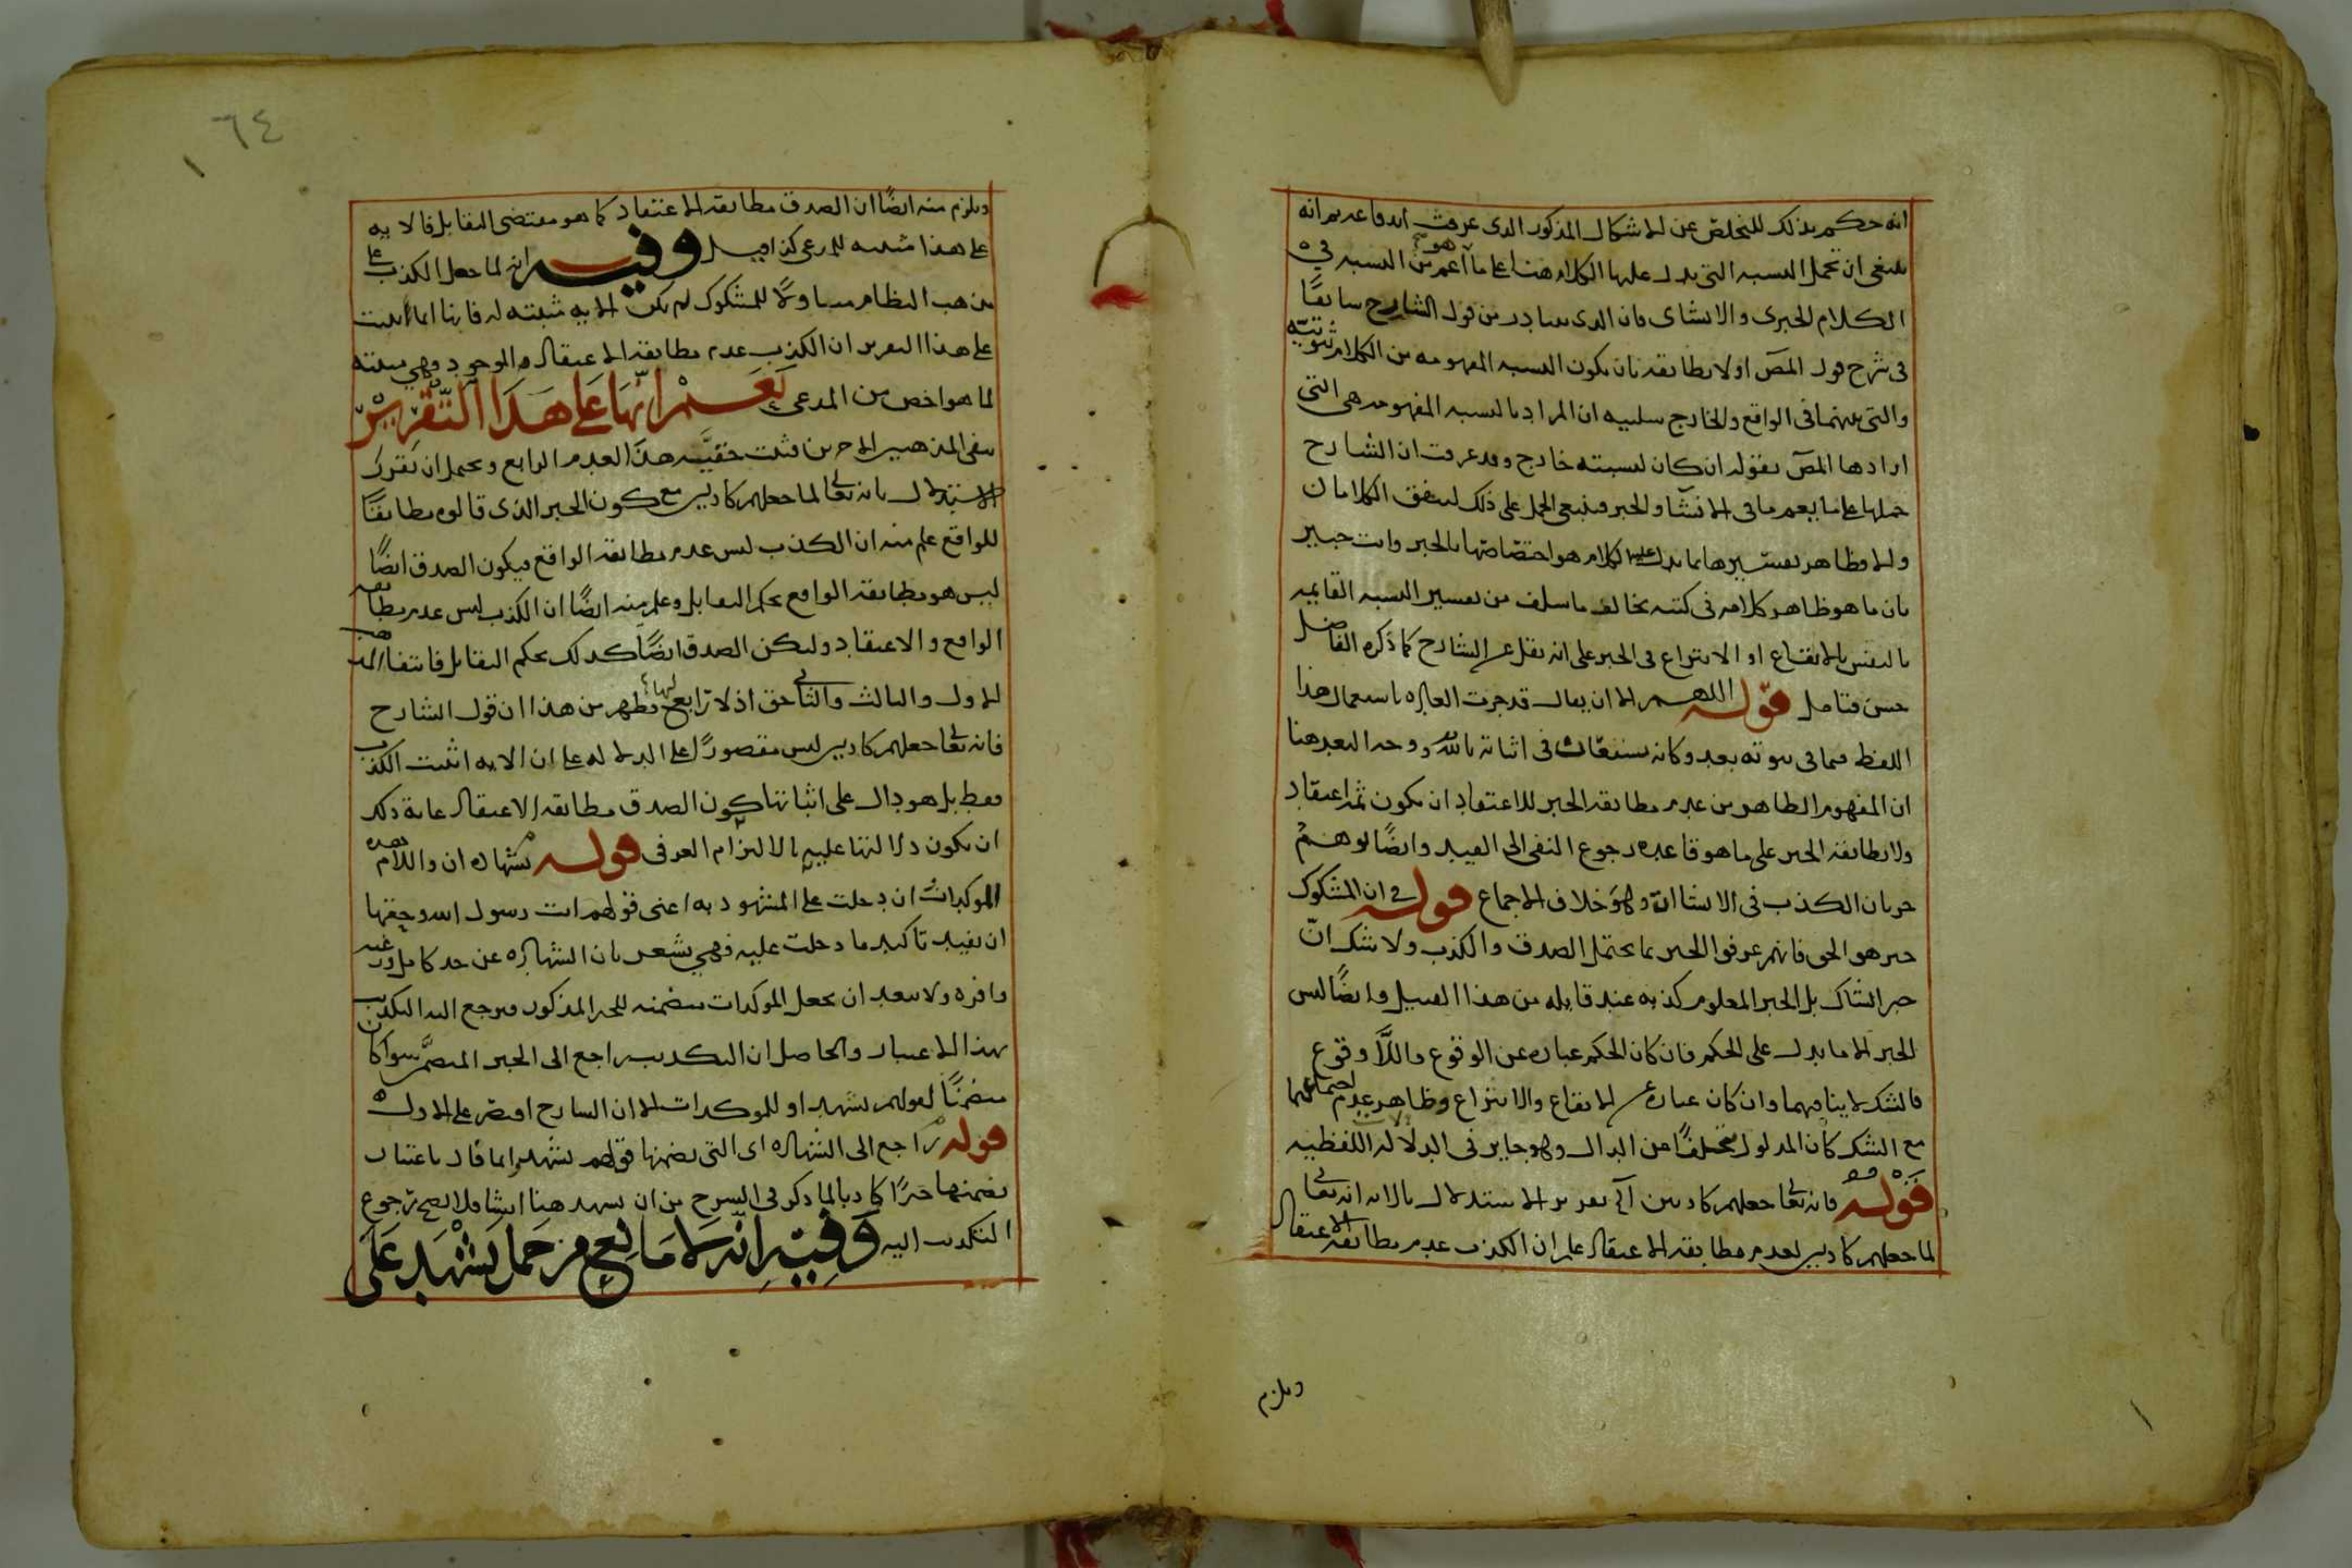 انه حكم بذلك للتخلص عن الاشكال المذكور الذى عرفت اندفاعه ثم انه
ينبغى ان تحمل النسبه التى يدل عليها الكلام هنا على ما هو اعم من النسبه فى
الكلام الخبرى والانشاى فان الذى يتبادر من قول الشارح سابقًا
فى شرح قول المص او لا يطابقه بان يكون النسبه المفهومه من الكلام ثبوتيّه
والتى بينهما فى الواقع والخارج سلبيه ان المراد بالنسبه المفهومه هى التى
ارادها المص بقوله ان كان لنسبته خارج وقد عرفت ان الشارح
حملها على ما يعم ما فى الانشا والخبر فينبغى الحمل على ذلك ليتفق الكلامان
والا فظاهر تفسيرها بما يدل عليه الكلام هو اختصاصها بالخبر وانت خبير
بان ما هو ظاهر كلامه فى كتبه يخالف ما سلف من تفسير النسبه القايمه
بالنفس بالايقاع او الانتزاع فى الخبر على انه نقل عن الشارح كما ذكره الفاضل
حسن فتامل قوله اللهم الا ان يقال قد جرت العاده باستعمال هذا
اللفظ فيما فى ثبوته بعد وكانه يستعان فى اثباته بالله ووجه البعد هنا
ان المفهوم الظاهر من عدم مطابقه الخبر للاعتقاد ان يكون ثمه اعتقاد
ولا يطابقه الخبر على ما هو قاعده رجوع النفى الى القيد وايضًا يوهم
جريان الكذب فى الانشاات وهو خلاف الاجماع قوله فى ان المشكوك
خبر هو الحق فانهم عرفوا الخبر بما يحتمل الصدق والكذب ولا شك انّ
خبر الشاك بل الخبر المعلوم كذبه عند قايله من هذا القبيل وايضًا ليس
الخبر الا ما يدل على الحكم فان كان الحكم عباره عن الوقوع واللّا وقوع
فالشك لا ينافيهما وان كان عباره عن الايقاع والانتزاع وظاهر عدم اجتماعهما
مع الشك كان المدلول متخلفًا عن الدال وهو جايز فى الدلاله اللفظيه
قوله فانه تعالى جعلهم كاذبين آلخ تقرير الاستدلال بالايه انه تعالى
لما جعلهم كاذبين لعدم مطابقه الاعتقاد علم ان الكذب عدم مطابقه الاعتقاد
ويلزم
١٦٤
ويلزم منه ايضًا ان الصدق مطابقه الاعتقاد كما هو مقتضى التقابل فالايه
على هذا مثبته للمدعى كذا قيل وفيه انه لما جعل الكذب على
مذهب النظام متناولًا للمشكوك لم يكن الايه مثبته له فانها انما اثبتت
على هذا التقرير ان الكذب عدم مطابقه الاعتقاد الموجود وهى مثبته
لما هو اخص من المدعى نعم انها على هذا التقرير
ينفى المذهبين الاخرين فثبت حقيّه هذا لعدم الرابع ويحمل ان تقرر
الاستدلال بانه تعالى لما جعلهم كاذبين مع كون الخبر الذى قالوه مطابقًا
للواقع علم منه ان الكذب ليس عدم مطابقه الواقع فيكون الصدق ايضًا
ليس هو مطابقه الواقع بحكم التقابل وعلم منه ايضًا ان الكذب ليس عدم مطابقه
الواقع والاعتقاد وليكن الصدق ايضًا كذلك بحكم التقابل فانتفا المذهب
الاول والثالث والثانى حق اذ لا رابع لها فظهر من هذا ان قول الشارح
فانه تعالى جعلهم كاذبين ليس مقصورًا على الدلاله على ان الايه اثبتت الكذب
فقط بل هو دال على اثباتها كون الصدق مطابقه الاعتقاد غايه ذلك
ان يكون دلالتها عليه بالالتزام العرفى قوله بشهاده ان واللام هذه
الموكدات ان دخلت على المشهود به اعنى قولهم انت رسول الله وحقها
ان يفيد تاكيد ما دخلت عليه فهى يشعر بان الشهاده عن حد كامل ورغبه
وافره ولا يبعد ان يجعل الموكدات متضمنه للخبر المذكور فيرجع اليه التكذيب
بهذا الاعتبار والحاصل ان التكذيب راجع الى الخبر المتضمّن سوا كان
متضمنًا لقولهم نشهد او للموكدات الا ان الشارح اقتصر على الاول
قوله راجع الى الشهاده اى التى يضمنها قولهم نشهد وانما قال باعتبار
تضمنها خبرًا كاذبا لما ذكر فى الشرح من ان نشهد هنا انشا فلا يصح رجوع
التكذيب اليه وفيه انه لا مانع من حمل نشهد على